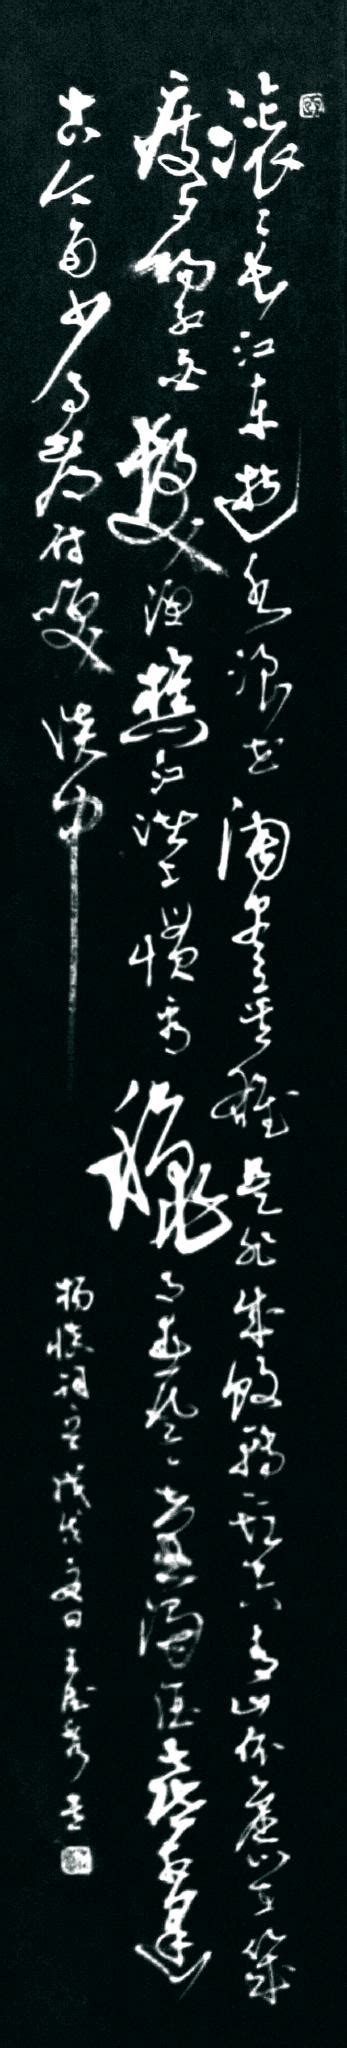 滚滚长江东逝水浪花淘尽英雄是非成败转头空青山依旧在几
度夕阳红白发渔樵江渚上惯看秋月春风一壶浊酒喜相逢
古今多少事都付笑谈中
杨慎词 戊戌夏日